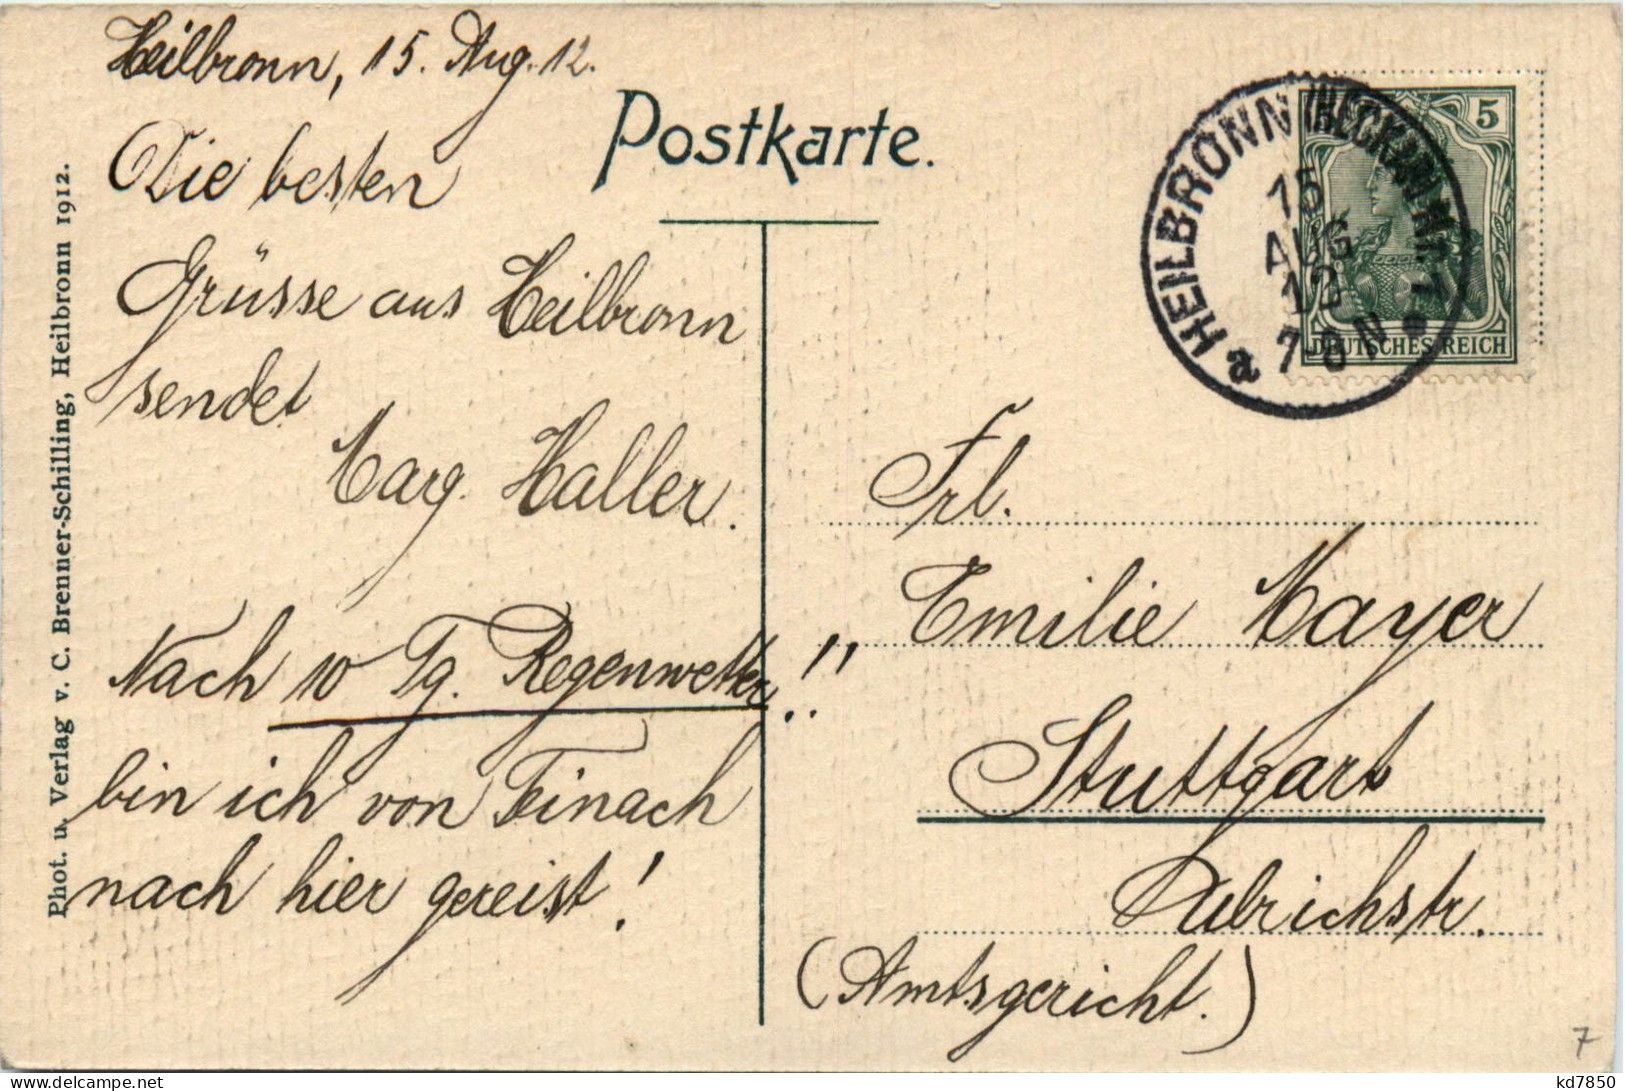 Heilbronn, 15. Aug. 12.
Die besten
Grüsse aus Heilbronn
sendet
Marg. Haller.
Nach 10 Tg. Regenwetter!!
bin ich von Teinach
nach hier gereist!
Phot. u. Verlag v. C. Brenner-Schilling, Heilbronn 1912.
Postkarte.
HEILBRONN (NECKAR) Nr. 1
15
AUG
12
7-8 N
a
5
DEUTSCHES REICH
Frl.
Emilie Mayer
Stuttgart
Ulrichstr.
(Amtsgericht.)
7
kd7850